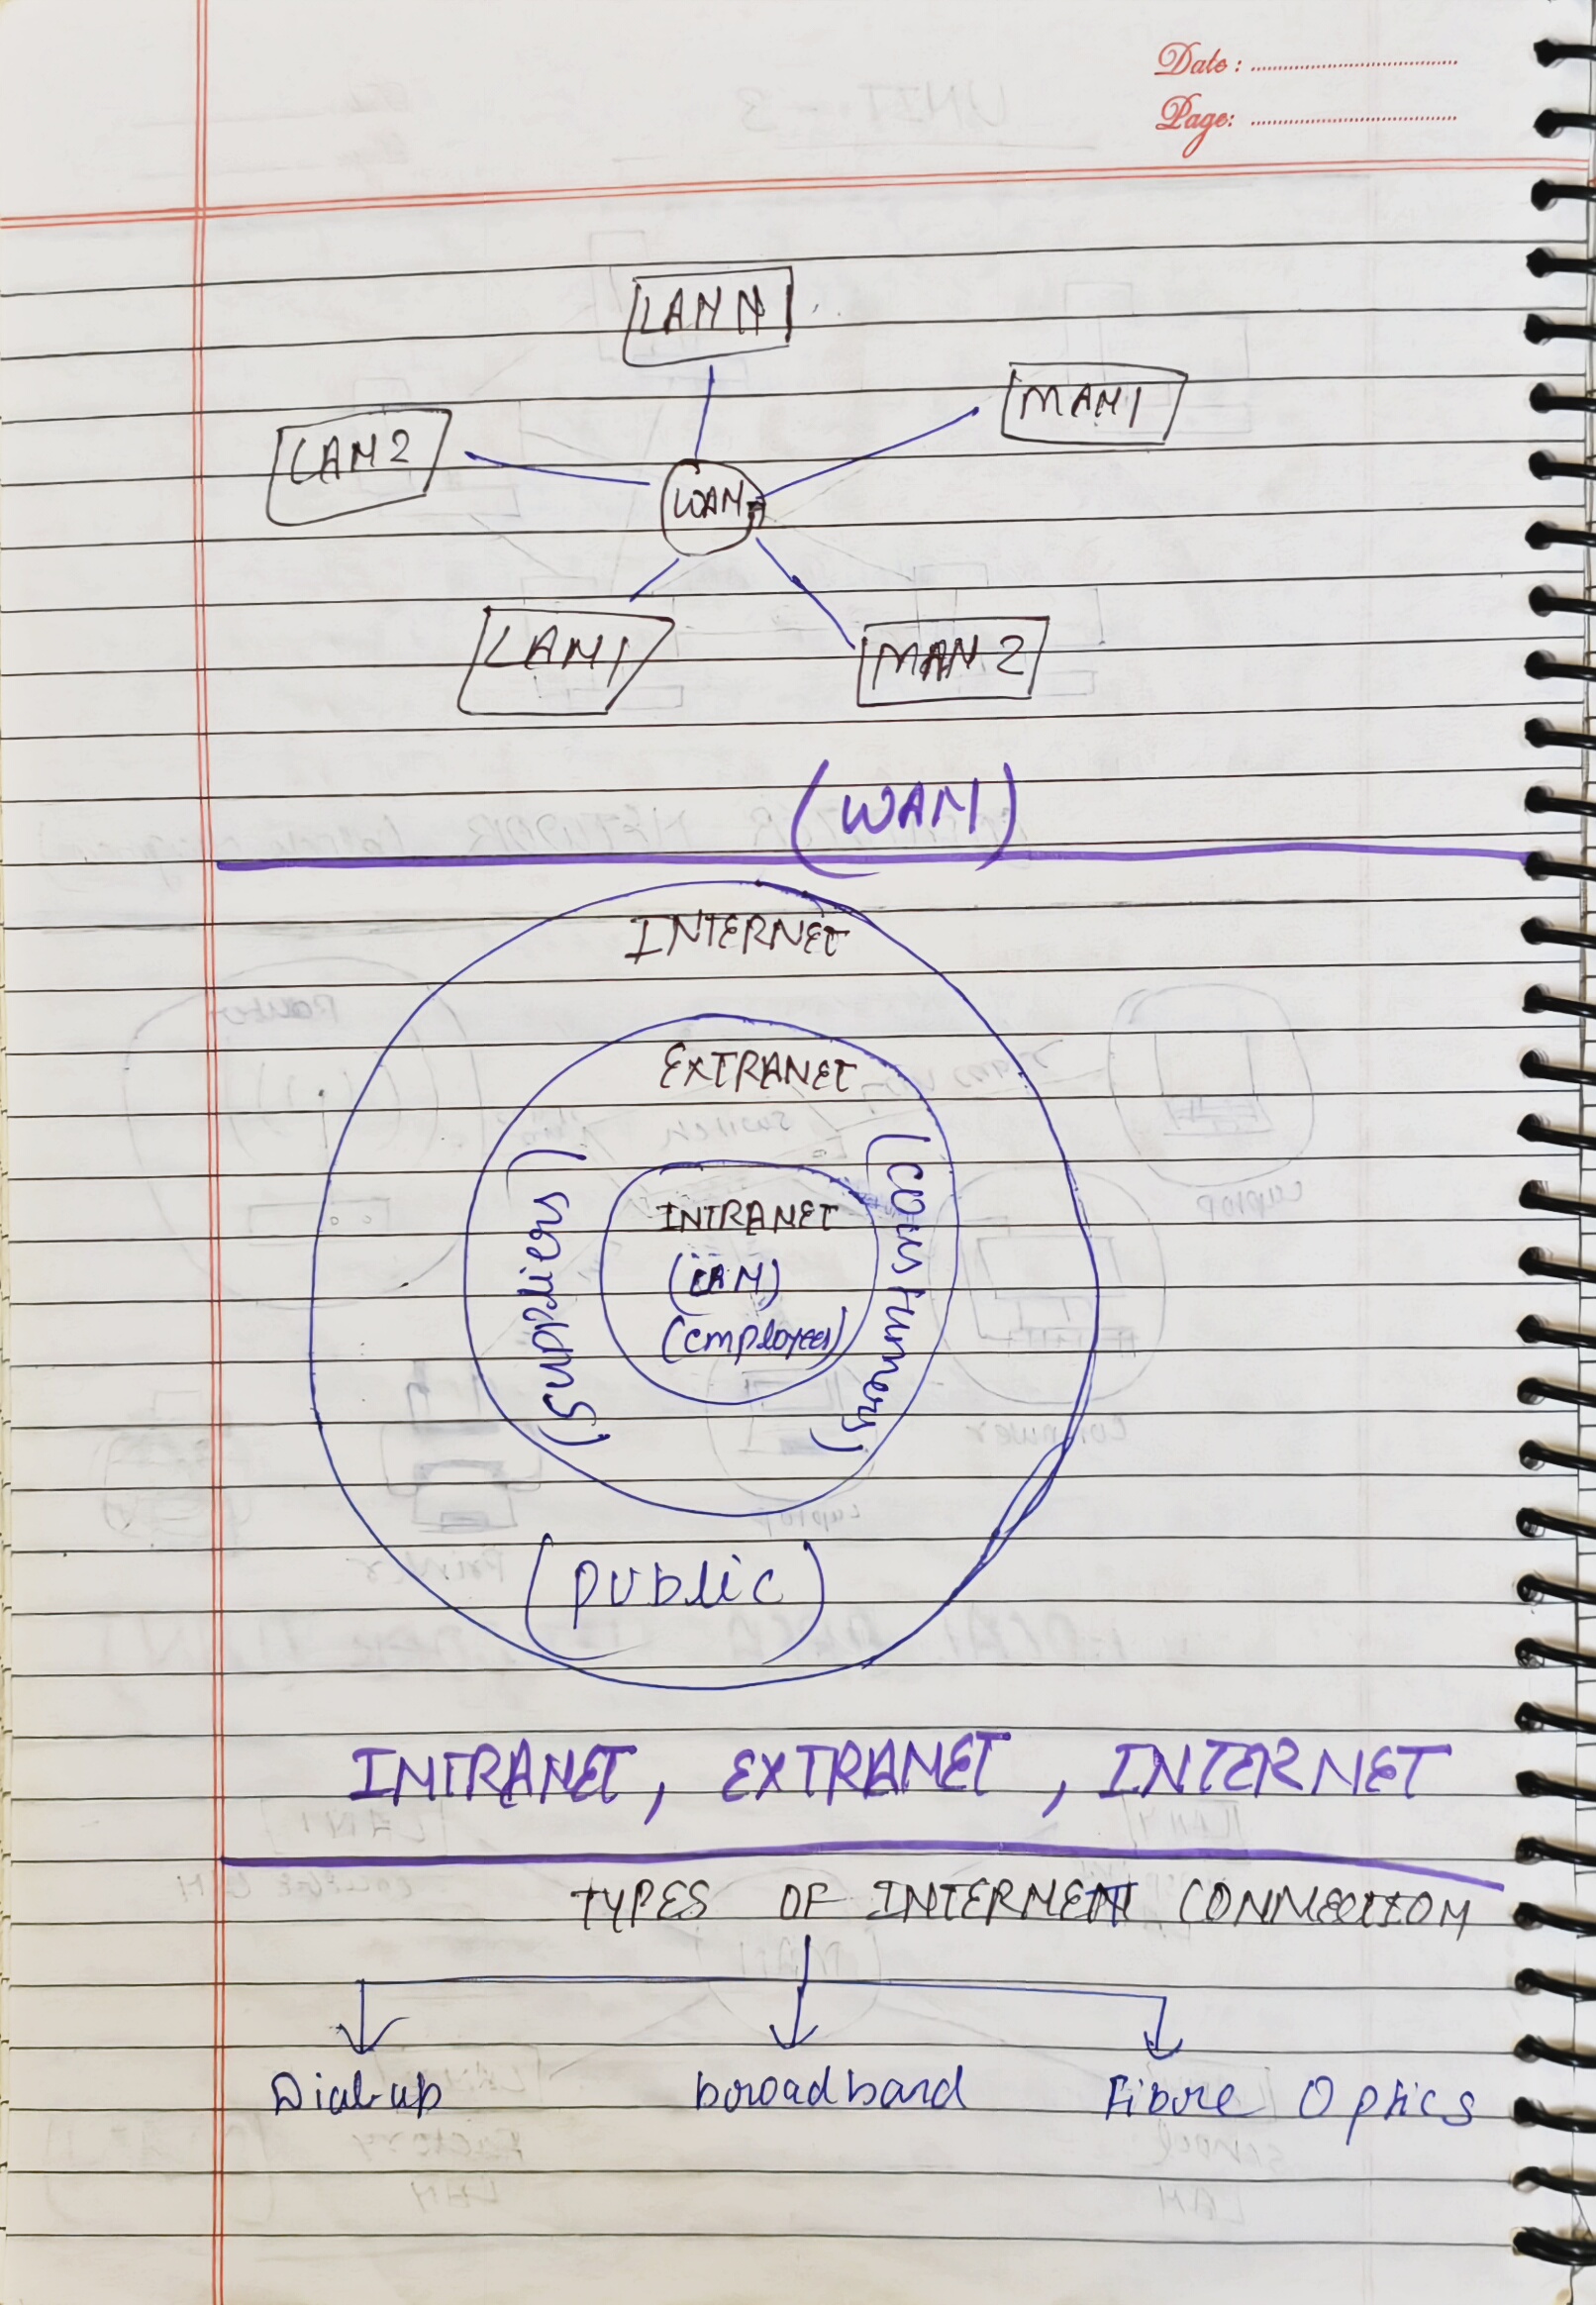 Date :
Page:
LAN N
MAN1
LAN2
WAN
LAN1
MAN 2
(WAN)
INTERNET
EXTRANET
(suppliers)
(coustumers)
INTRANET
(LAN)
(employees)
(public)
INTRANET, EXTRANET, INTERNET
TYPES OF INTERNENT CONNECTION
Dial-up
broadband
Fibre Optics